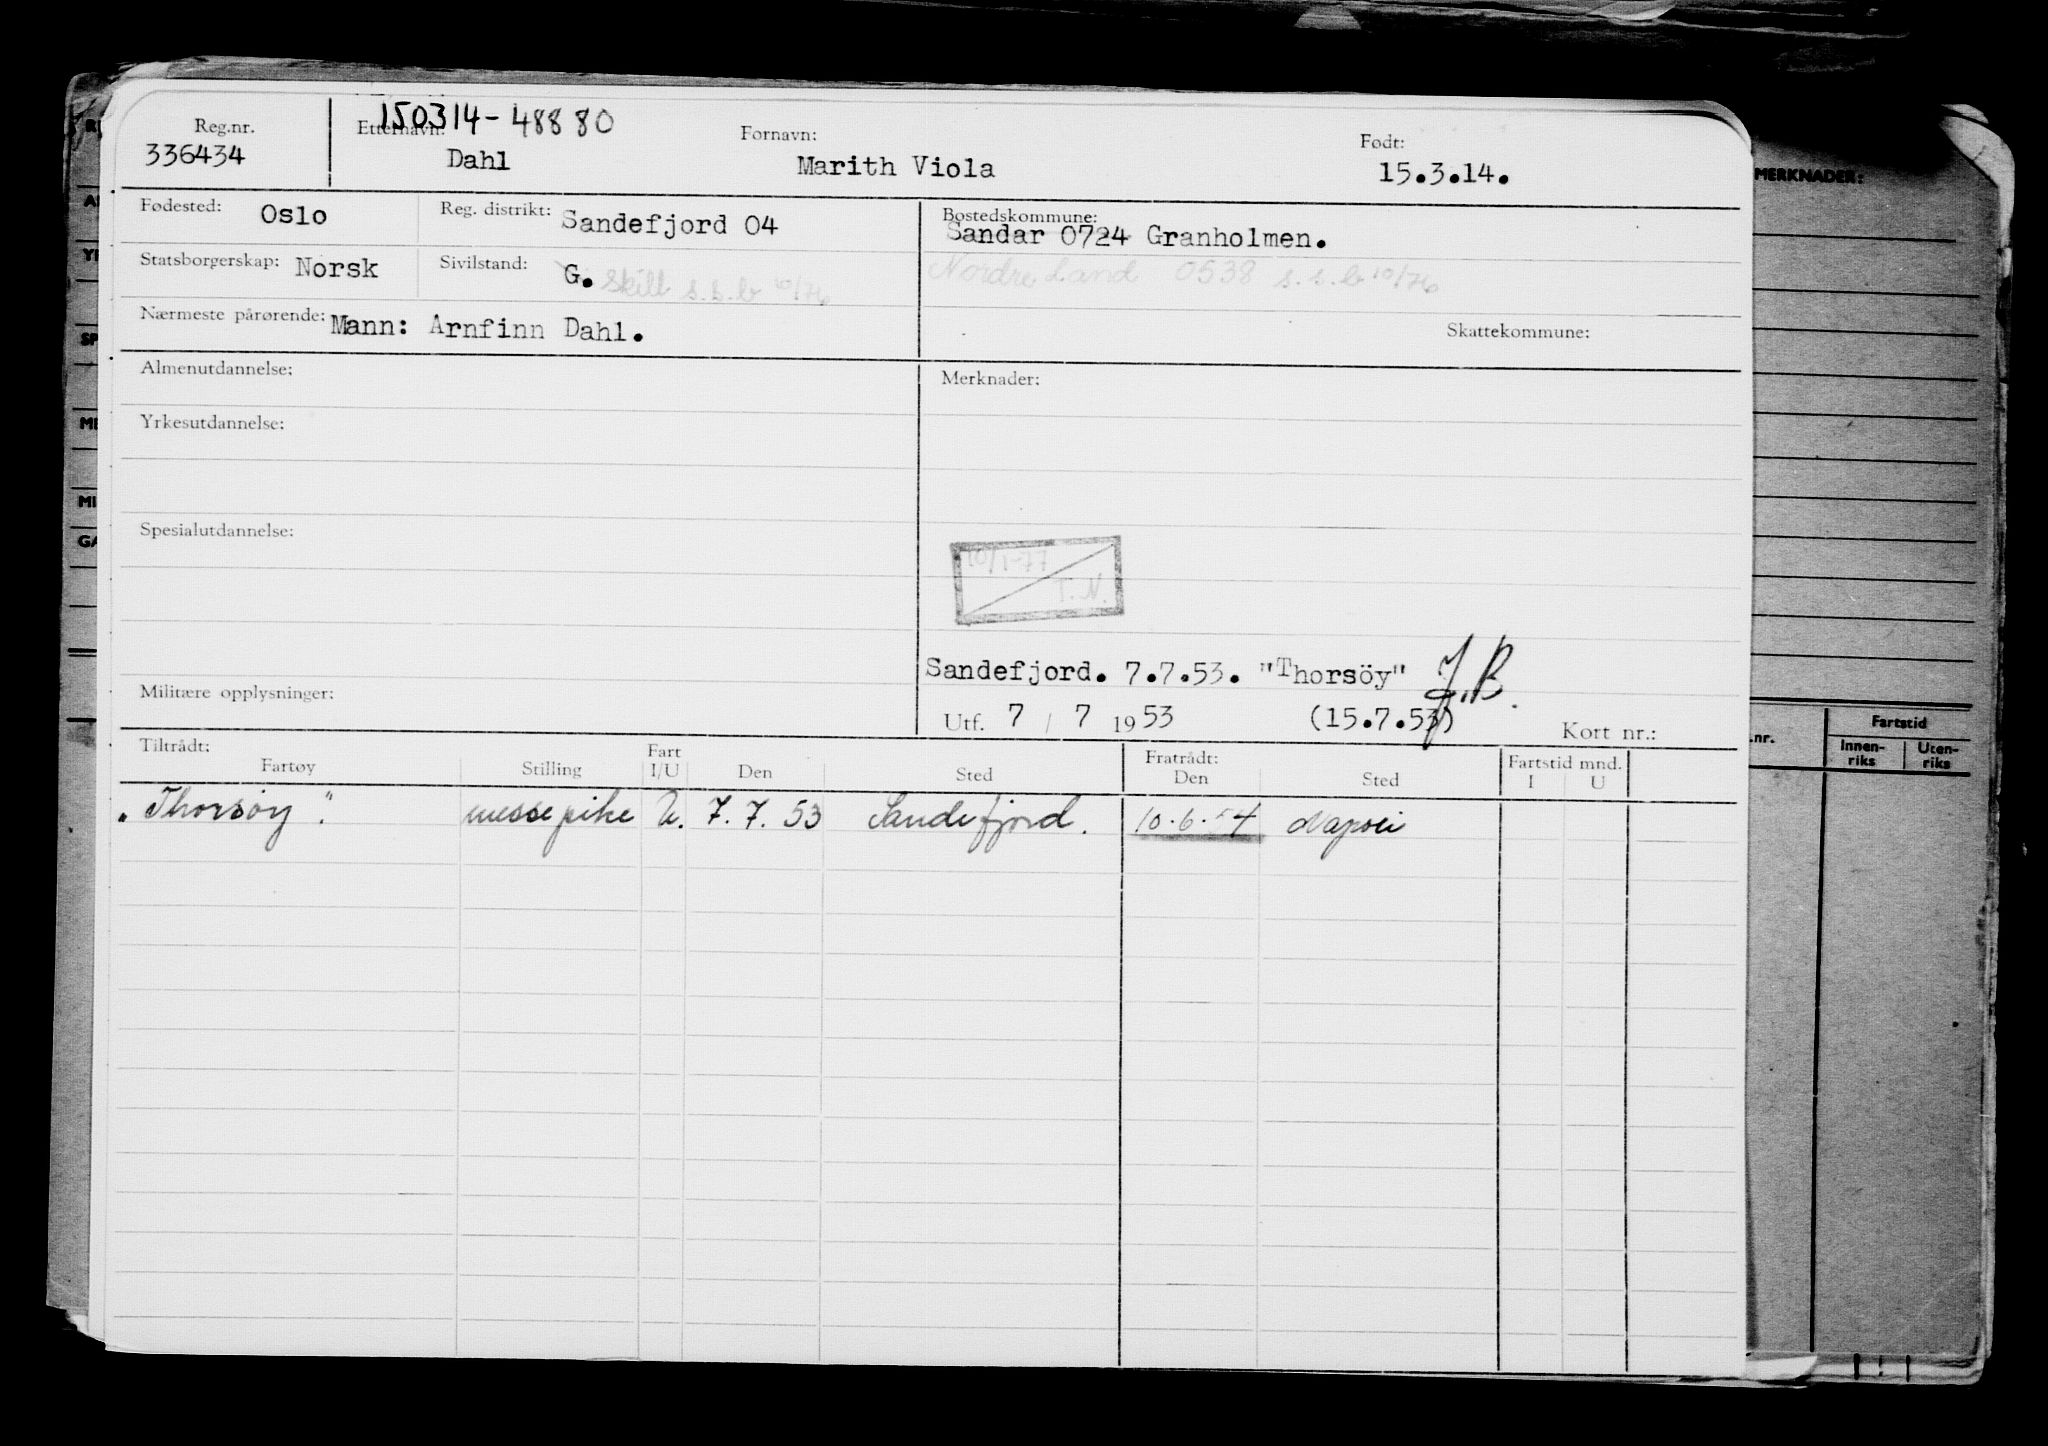 150314-48880
Reg.nr. Etternavn: Fornavn: Født:
336434 Dahl Marith Viola 15.3.14.
Fødested: Oslo Reg. distrikt: Sandefjord 04 Bostedskommune:
Sandar 0724 Granholmen.
Statsborgerskap: Norsk Sivilstand: G. Skilt s.s.b 10/76 Nordre Land 0538 s.s.b 10/76
Nærmeste pårørende: Mann: Arnfinn Dahl. Skattekommune:
Almenutdannelse: Merknader:
Yrkesutdannelse:
Spesialutdannelse:
10/1-77
T.N.
Sandefjord. 7.7.53. "Thorsöy" J.B.
Militære opplysninger:
Utf. 7 / 7 1953 (15.7.53) Kort nr.:
Tiltrådt: Fratrådt: Fartstid mnd.
Fartøy Stilling Fart I/U Den Sted Den Sted I U
"Thorsöy". messepike U. 7.7.53 Sandefjord. 10.6.54
MERKNADER:
.nr. Fartstid
Innen-riks Uten-riks